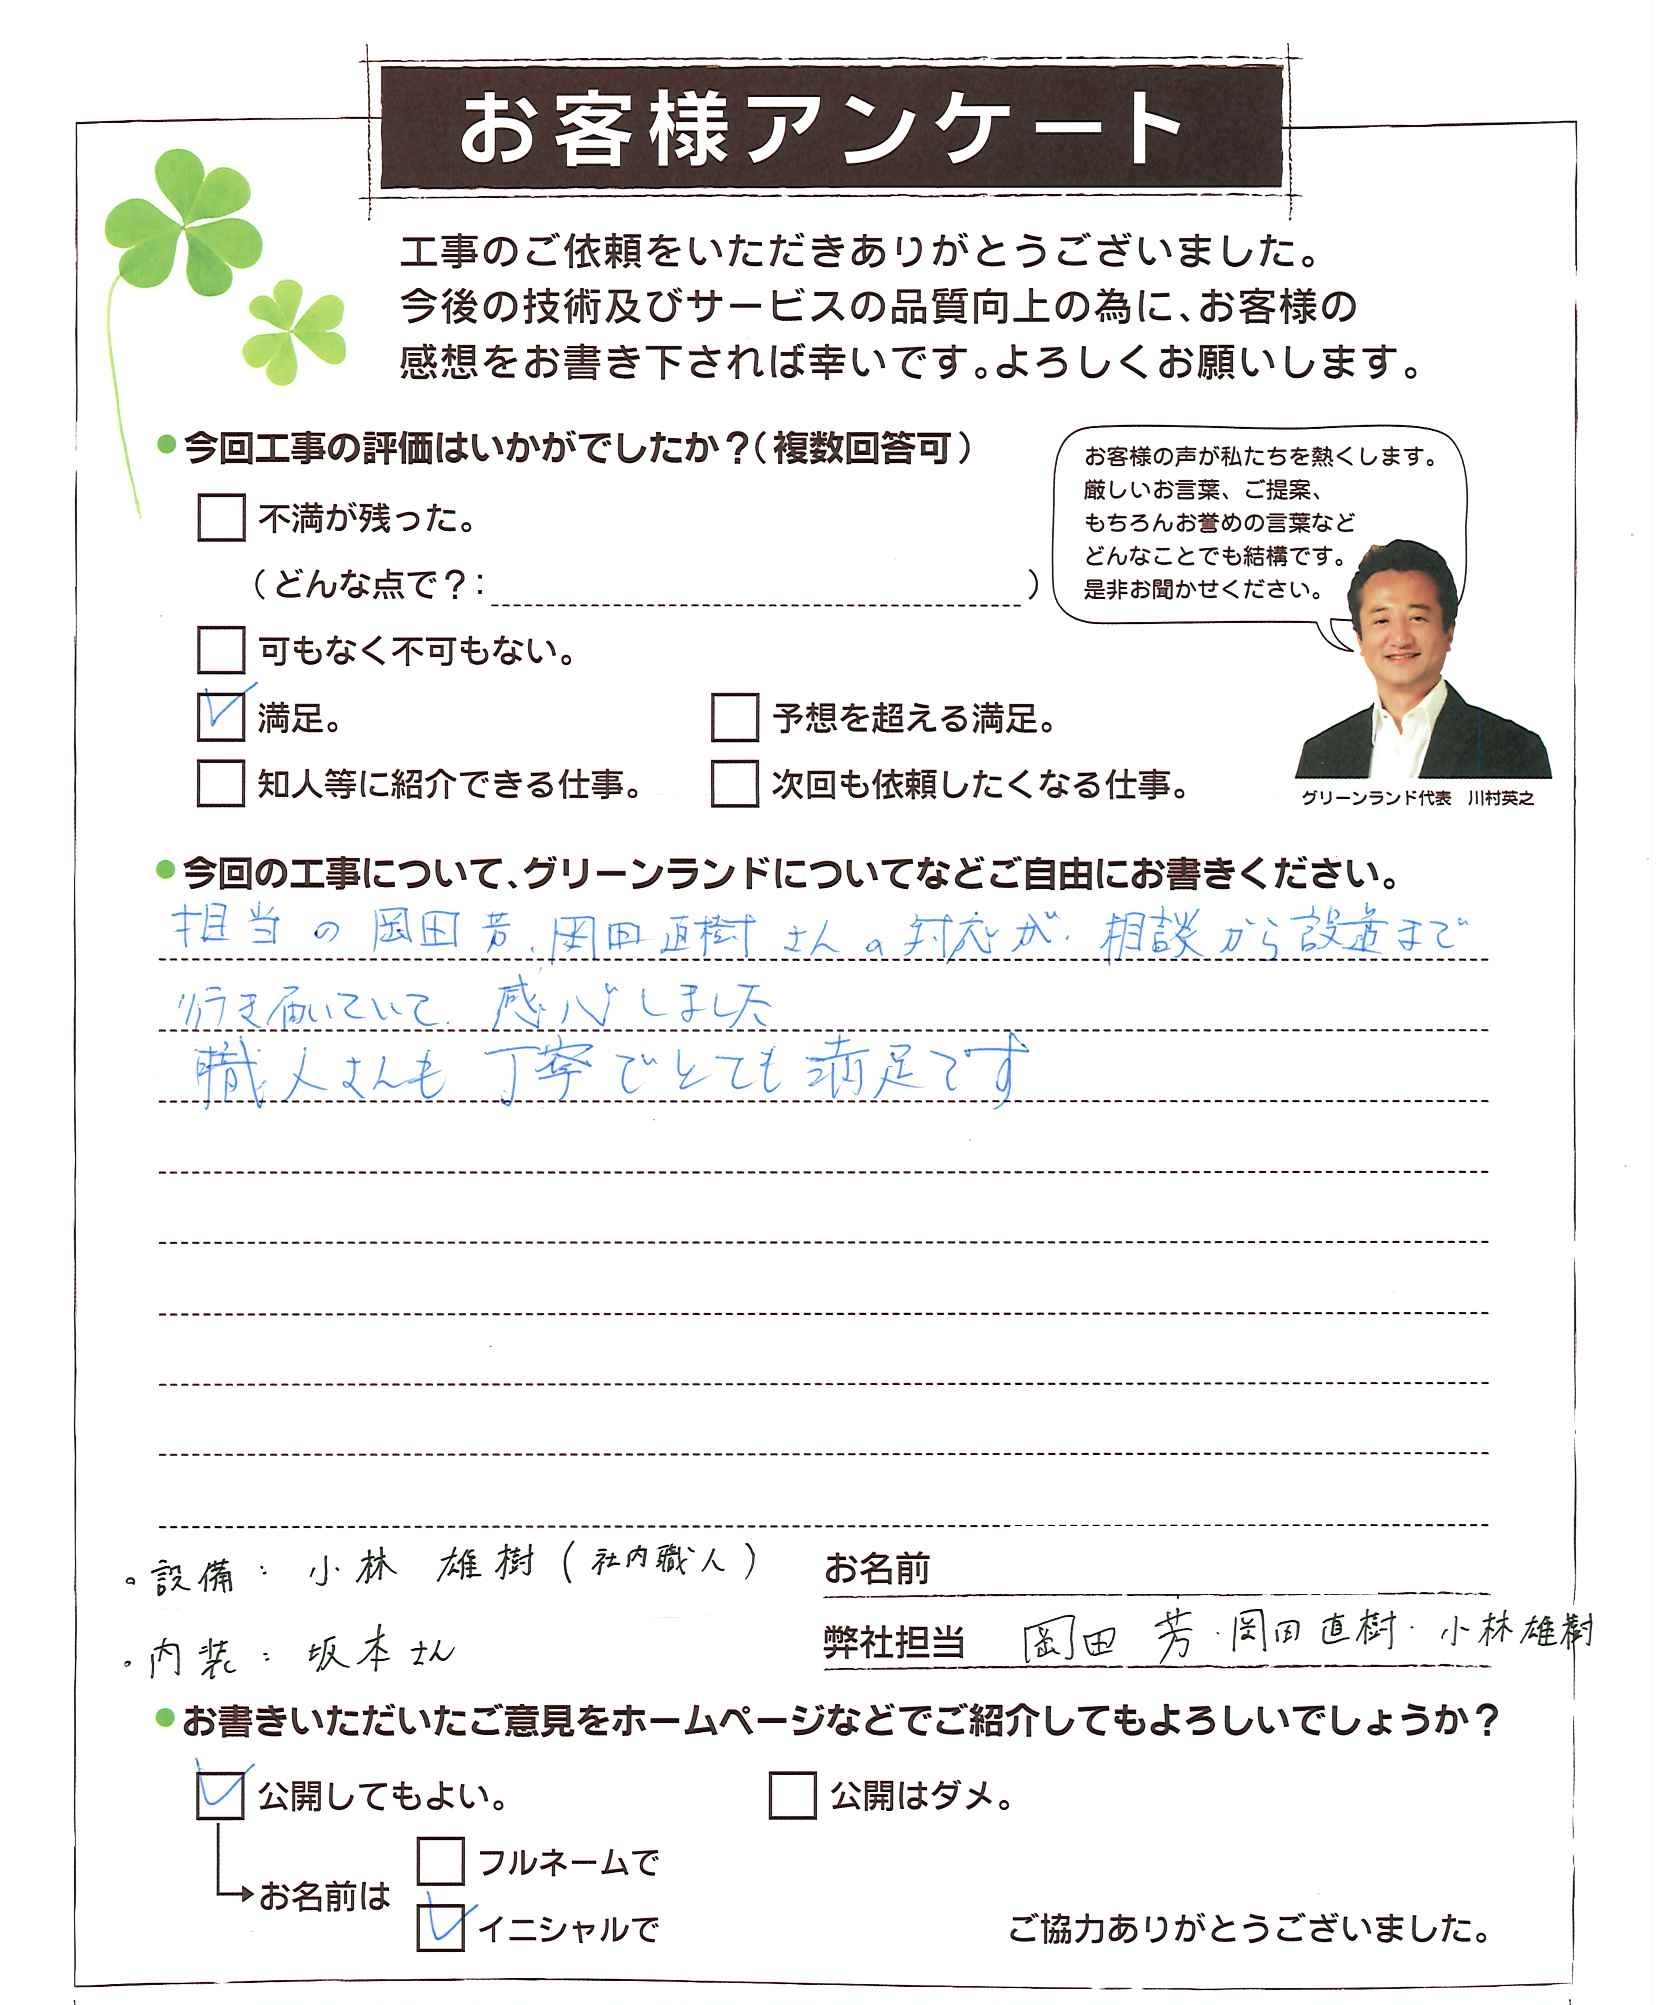 お客様アンケート
工事のご依頼をいただきありがとうございました。
今後の技術及びサービスの品質向上の為に、お客様の
感想をお書き下されば幸いです。よろしくお願いします。
●今回工事の評価はいかがでしたか？（複数回答可）
お客様の声が私たちを熱くします。
厳しいお言葉、ご提案、
もちろんお誉めの言葉など
どんなことでも結構です。
是非お聞かせください。
不満が残った。
（どんな点で？：　）
可もなく不可もない。
満足。
予想を超える満足。
知人等に紹介できる仕事。
次回も依頼したくなる仕事。
グリーンランド代表　川村英之
●今回の工事について、グリーンランドについてなどご自由にお書きください。
担当の岡田芳、岡田直樹さんの対応が、相談から設置まで
行き届いていて、感心しました
職人さんも丁寧でとても満足です
・設備：小林 雄樹（社内職人）
お名前
・内装：坂本さん
弊社担当　岡田 芳・岡田直樹・小林雄樹
●お書きいただいたご意見をホームページなどでご紹介してもよろしいでしょうか？
公開してもよい。
公開はダメ。
フルネームで
お名前は
イニシャルで
ご協力ありがとうございました。